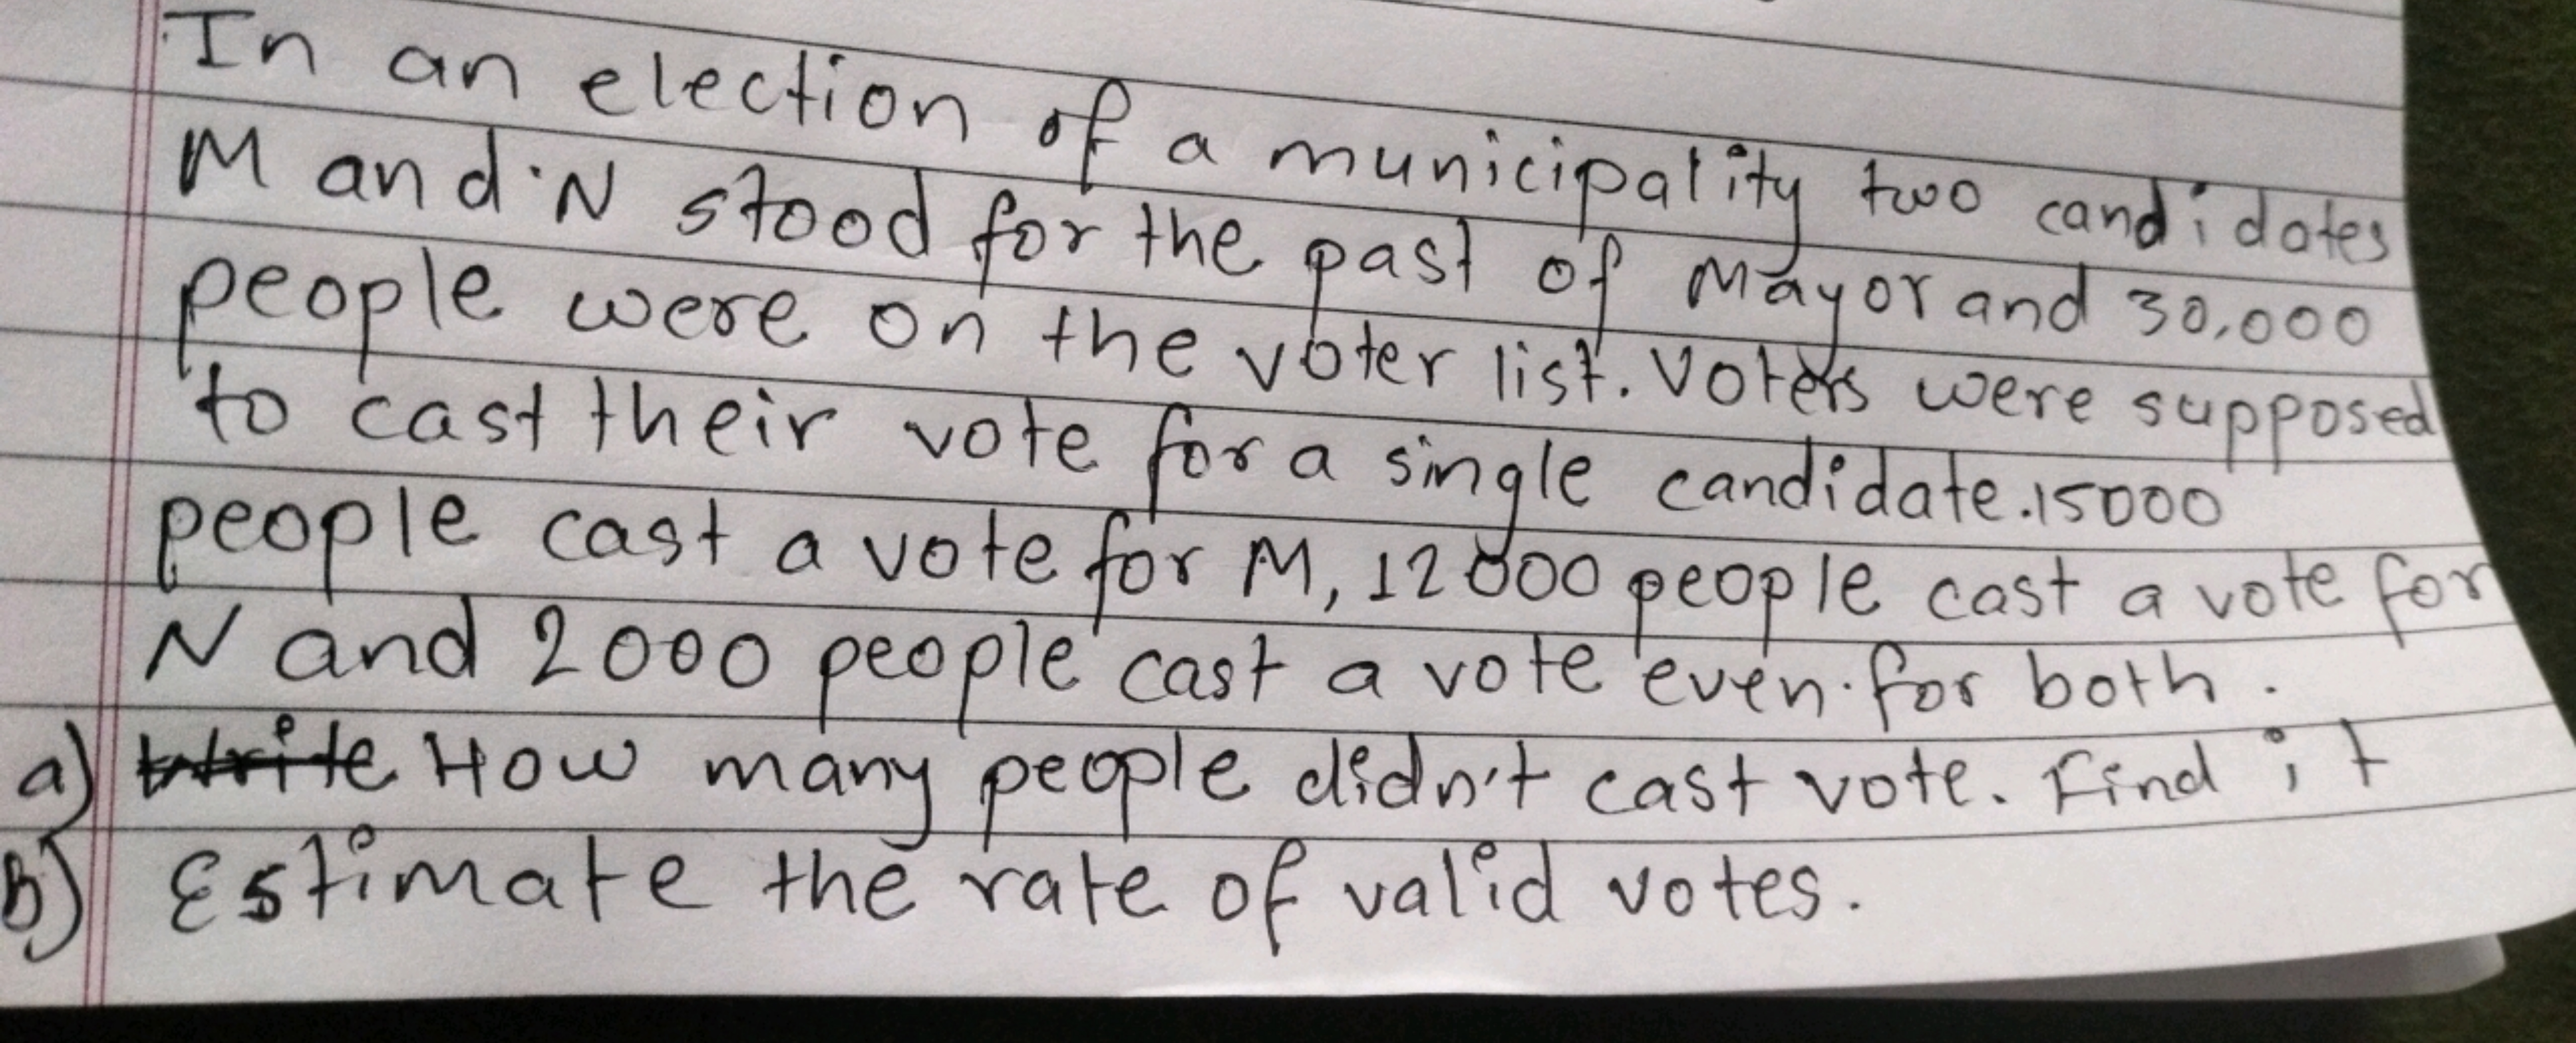 In an election of a municipality two candidates
M and N stood for the past of Mayor and 30,000
people were on the voter list. Voters were supposed
to cast their vote for a single candidate. 15000
people cast a vote for M, 12000 people cast a vote for
N and 2000 people cast a vote even for both.
a) Write How many people didn't cast vote. Find it
b) Estimate the rate of valid votes.